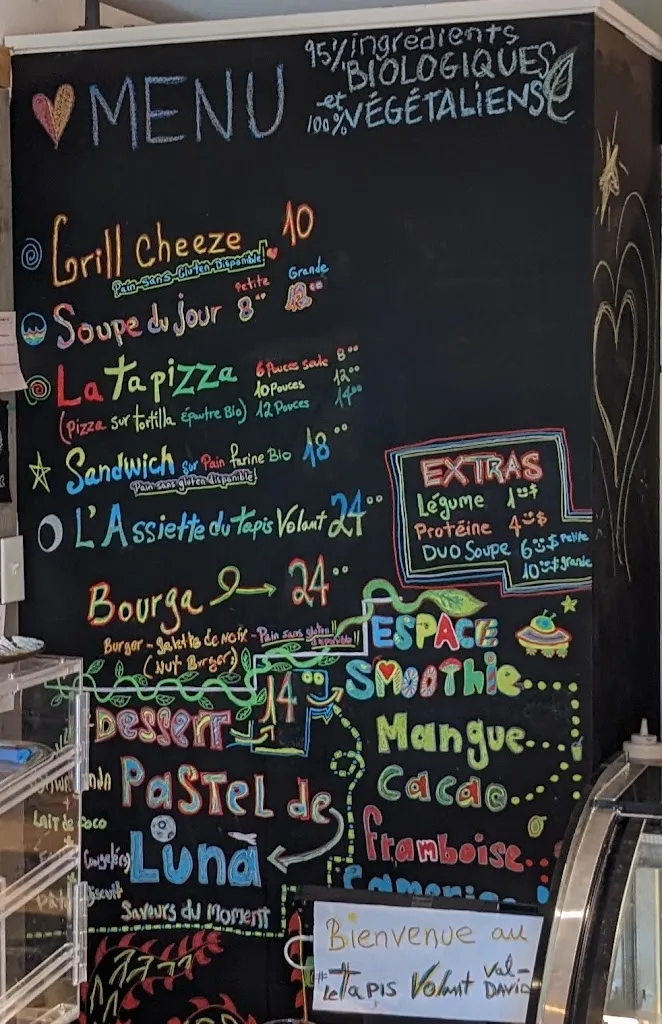 MENU
95% ingrédients
BIOLOGIQUES
et
100% VÉGÉTALIENS
Grill Cheeze 10
Pain Sans Gluten Disponible!
Petite Grande
Soupe du jour 8.00
La Tapizza 6 Pouces seule 8.00
10 Pouces 12.00
(Pizza sur tortilla Épautre Bio) 12 Pouces 14.00
Sandwich sur Pain farine Bio 18.00
Pain sans gluten disponible!
L'Assiette du Tapis Volant 24.00
EXTRAS
Légume 1 $
Protéine 4 $
DUO Soupe 6 $ Petite
10 $ grande
Bourga 24.00
Burger - Galette de Noix - Pain sans gluten disponible!!
(Nut Burger)
DESSERT 14
PASTEL de
LUNA
Lait de coco
(Congelés)
Biscuit
Saveurs du Moment
ESPACE
SMOOTHIE
Mangue
Cacao
Framboise
Bienvenue au
#LeTapis Volant Val-
DAVID